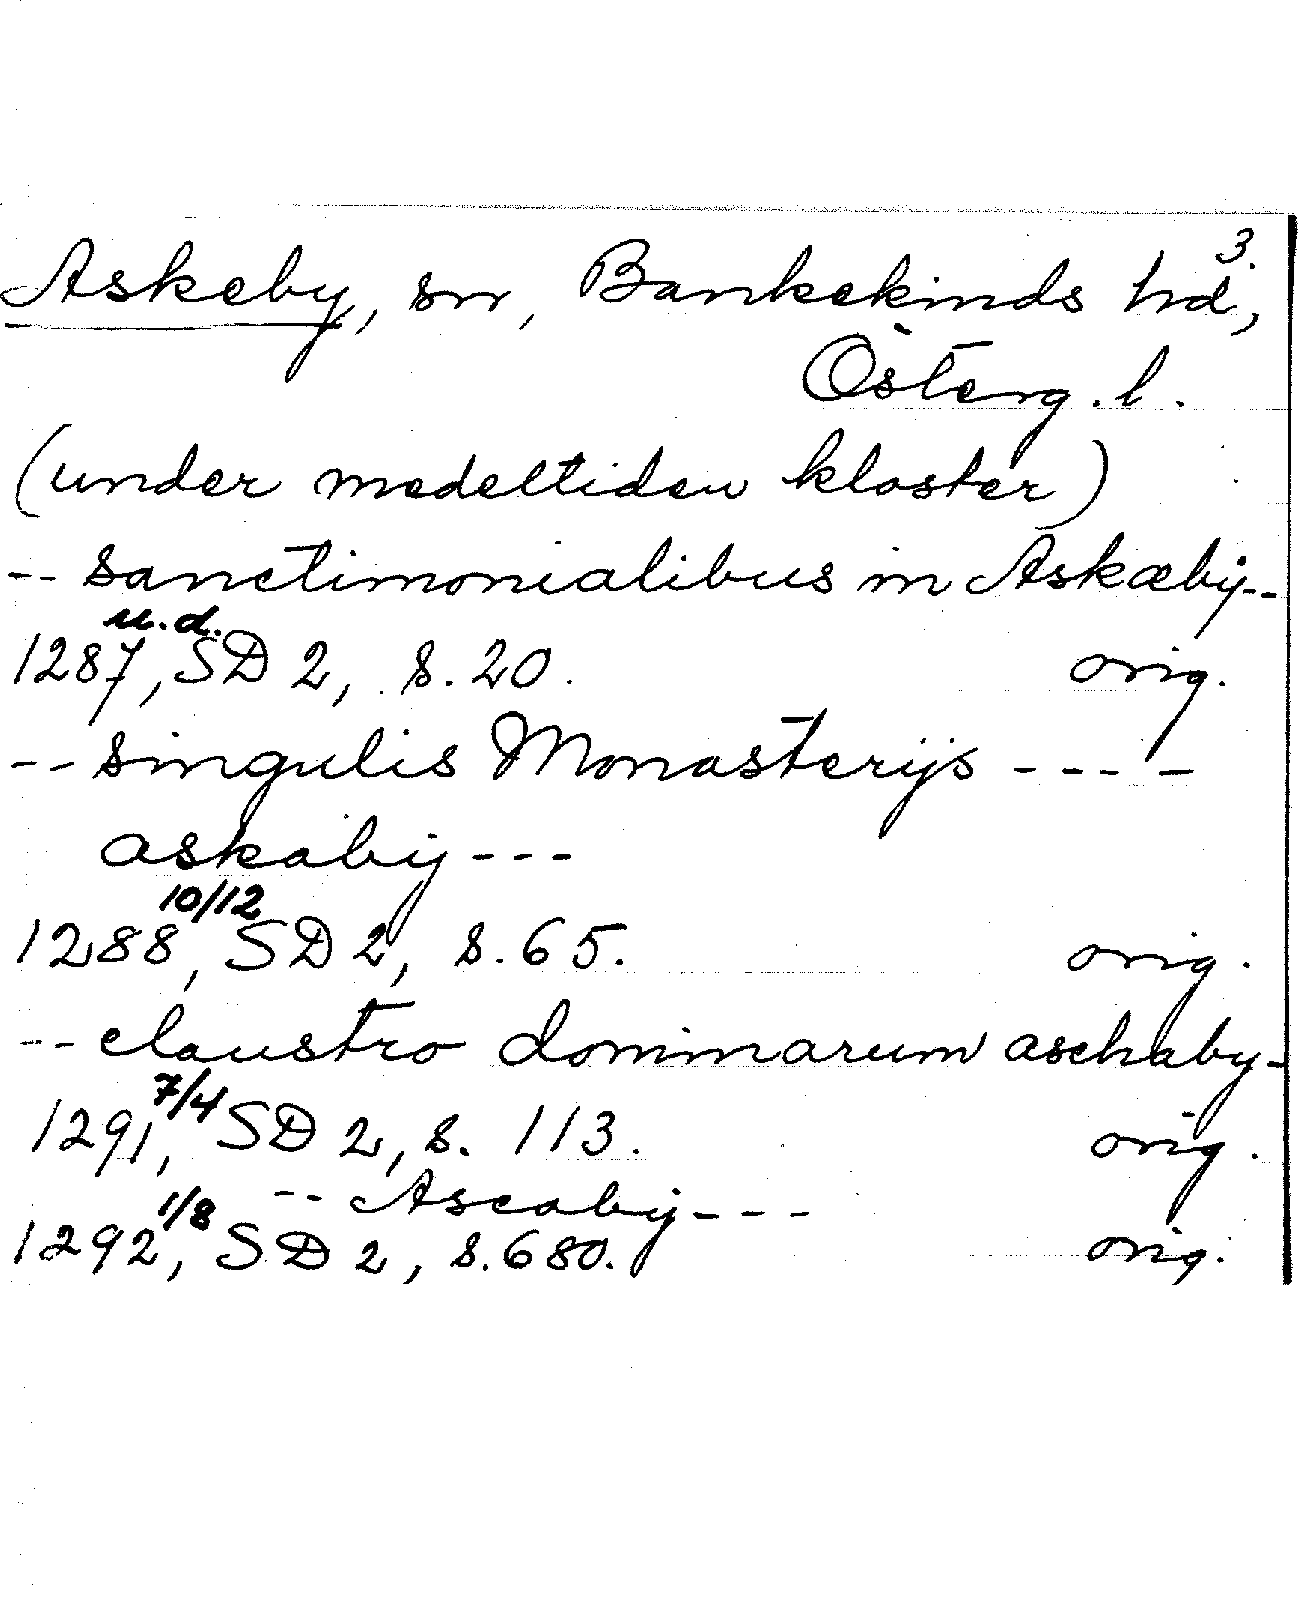 3.
Askeby, sn, Bankekinds hd,
Österg. l.
(under medeltiden kloster)
-- sanctimonialibus in Askæby --
u.d.
1287, SD 2, s. 20. orig.
-- singulis Monasterijs ----
askaby ---
10/12
1288, SD 2, s. 65. orig.
-- claustro dominarum aschaby -
7/4
1291, SD 2, s. 113. orig.
-- Ascaby ---
1/8
1292, SD 2, s. 680. orig.